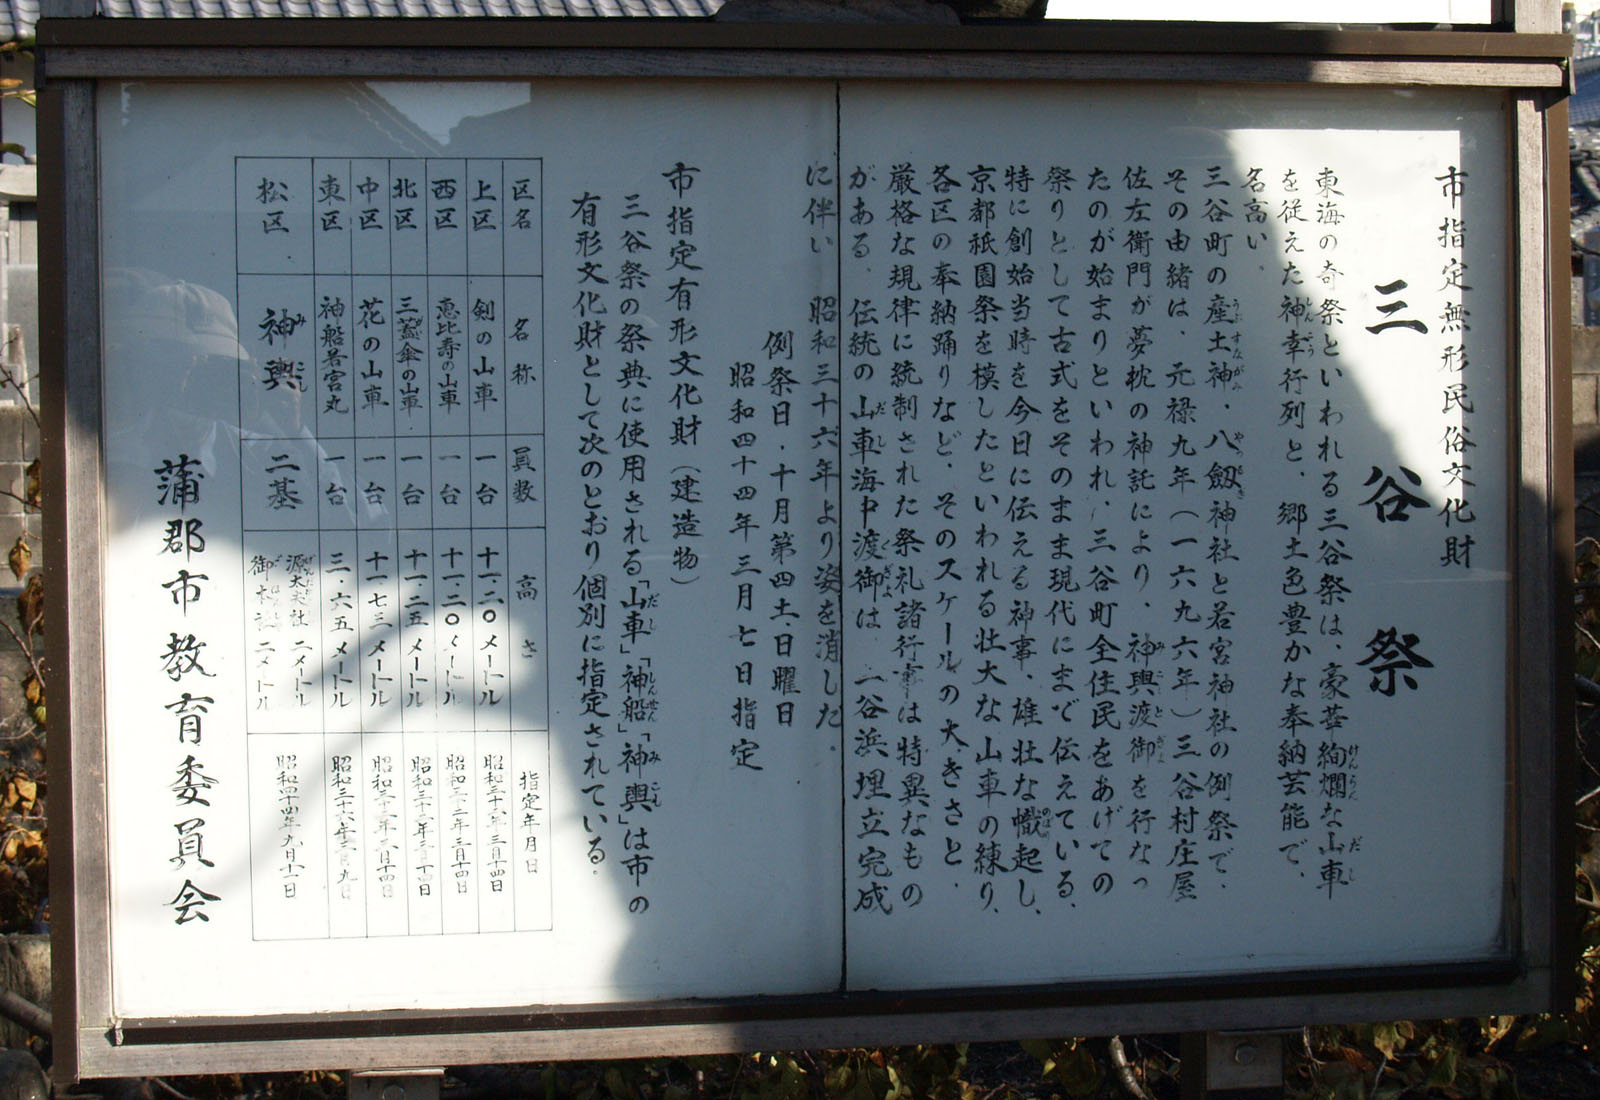 市指定無形民俗文化財
三谷祭
東海の奇祭といわれる三谷祭は、豪華絢爛な山車
を従えた神幸行列と、郷土色豊かな奉納芸能で、
名高い。
三谷町の産土神・八劔神社と若宮神社の例祭で、
その由緒は、元禄九年(一六九六年)三谷村庄屋
佐左衛門が夢枕の神託により、神輿渡御を行なっ
たのが始まりといわれ、三谷町全住民をあげての
祭りとして古式をそのまま現代にまで伝えている、
特に創始当時を今日に伝える神事、雄壮な幟起し、
京都祇園祭を模したといわれる壮大な山車の練り、
各区の奉納踊りなど、そのスケールの大きさと、
厳格な規律に統制された祭礼諸行事は特異なもの
がある。伝統の山車海中渡御は、三谷浜埋立完成
に伴い 昭和三十六年より姿を消した。
例祭日・十月第四土、日曜日
昭和四十四年三月七日指定
市指定有形文化財(建造物)
三谷祭の祭典に使用される「山車」「神船」「神輿」は市の
有形文化財として次のとおり個別に指定されている。
区名 名称 員数 高さ 指定年月日
上区 剣の山車 一台 十一・二〇メートル 昭和三十六年三月十四日
西区 恵比寿の山車 一台 十一・二〇メートル 昭和三十二年三月十四日
北区 三蓋傘の山車 一台 十一・二五メートル 昭和三十二年三月十四日
中区 花の山車 一台 十一・七三メートル 昭和三十二年三月十四日
東区 神船若宮丸 一台 三・六五メートル 昭和三十六年三月九日
松区 神輿 二基 源太夫社 二メートル 昭和四十四年九月十一日
御社 二メートル
蒲郡市教育委員会